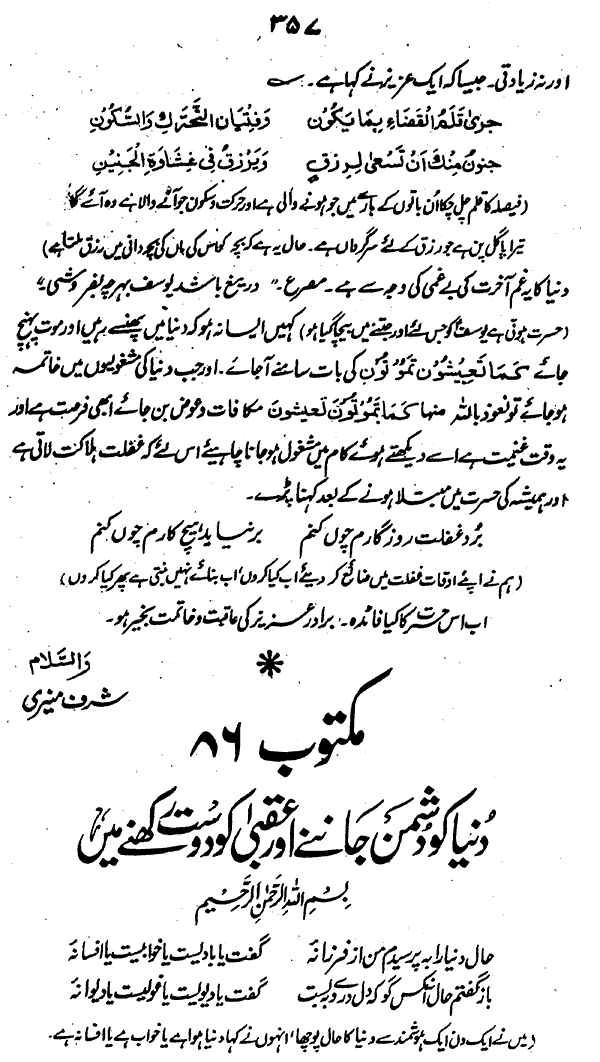 ۳۵۷
اور نہ زیادتی۔ جیسا کہ ایک عزیز نے کہا ہے۔ ؎
جرىٰ قَلَمُ الْقَضَاءِ بِمَا يَكُونُ وَفِتْيَانِ التَّحَرُّكُ وَالسُّكُونُ
جنونٌ مِنْكَ اَنْ تَسْعٰى لِرِزْقٍ وَيَرْزُقُ فِى غِشَاوَةِ الْجَنِيْنِ
(فیصلہ کا قلم چل چکا اُن باتوں کے بارے میں جو ہونے والی ہے اور حرکت و سکون جو آنے والا ہے وہ آئے گا
تیرا پاگل پن ہے جو رزق کے لئے سرگرداں ہے۔ حال یہ ہے کہ بچہ کو اس کی ماں کی بچہ دانی میں رزق ملتا ہے)
دنیا کا یہ غم آخرت کی بے غمی کی وجہ سے ہے۔ مصرع۔ " دریغ باشد یوسف بہرچہ بفروشی "
(حسرت ہوتی ہے یوسفؑ کو جس لئے اور جتنے میں بیچا گیا ہو) کہیں ایسا نہ ہو کہ دنیا میں پھنسے رہیں اور موت پہنچ
جائے كَمَا تَعِيْشُوْن تَمُوْتُوْن کی بات سامنے آجائے۔ اور جب دنیا کی مشغولیوں میں خاتمہ
ہو جائے تو نعوذ باللہ منہا كَمَا تَمُوْتُوْنَ تُعيشون مکافات و عوض بن جائے ابھی فرصت ہے اور
یہ وقت غنیمت ہے اسے دیکھتے ہوئے کام میں مشغول ہو جانا چاہیئے اس لئے کہ غفلت ہلاکت لاتی ہے
اور ہمیشہ کی حسرت میں مبتلا ہونے کے بعد کہنا پڑے۔
بُرد غفلت روزگارم چوں کنم برنیاید ہیچ کارم چوں کنم
(ہم نے اپنے اوقات غفلت میں ضائع کر دیئے اب کیا کروں' اب بنائے نہیں بنتی ہے پھر کیا کروں)
اب اس حسرت کا کیا فائدہ۔ برادر عزیز کی عاقبت و خاتمت بخیر ہو۔
والسّلام
شرف منیری
مکتوب ۸۶
دُنیا کو دُشمن جاننے اور عقبیٰ کو دوست رکھنے میں
بِسْمِ اللہِ الرَّحْمٰنِ الرَّحِیْمِ
حال دنیا را بہ پرسیدم من از فرزانہ گفت یا بادیست یا خوابیست یا افسانہ
باز گفتم حال آنکس گو کہ دل در وے بست گفت یا دیویست یا غولیست یا دیوانہ
(میں نے ایک دن ایک ہوشمند سے دنیا کا حال پوچھا' انہوں نے کہا دنیا ہوا ہے یا خواب ہے یا افسانہ ہے۔